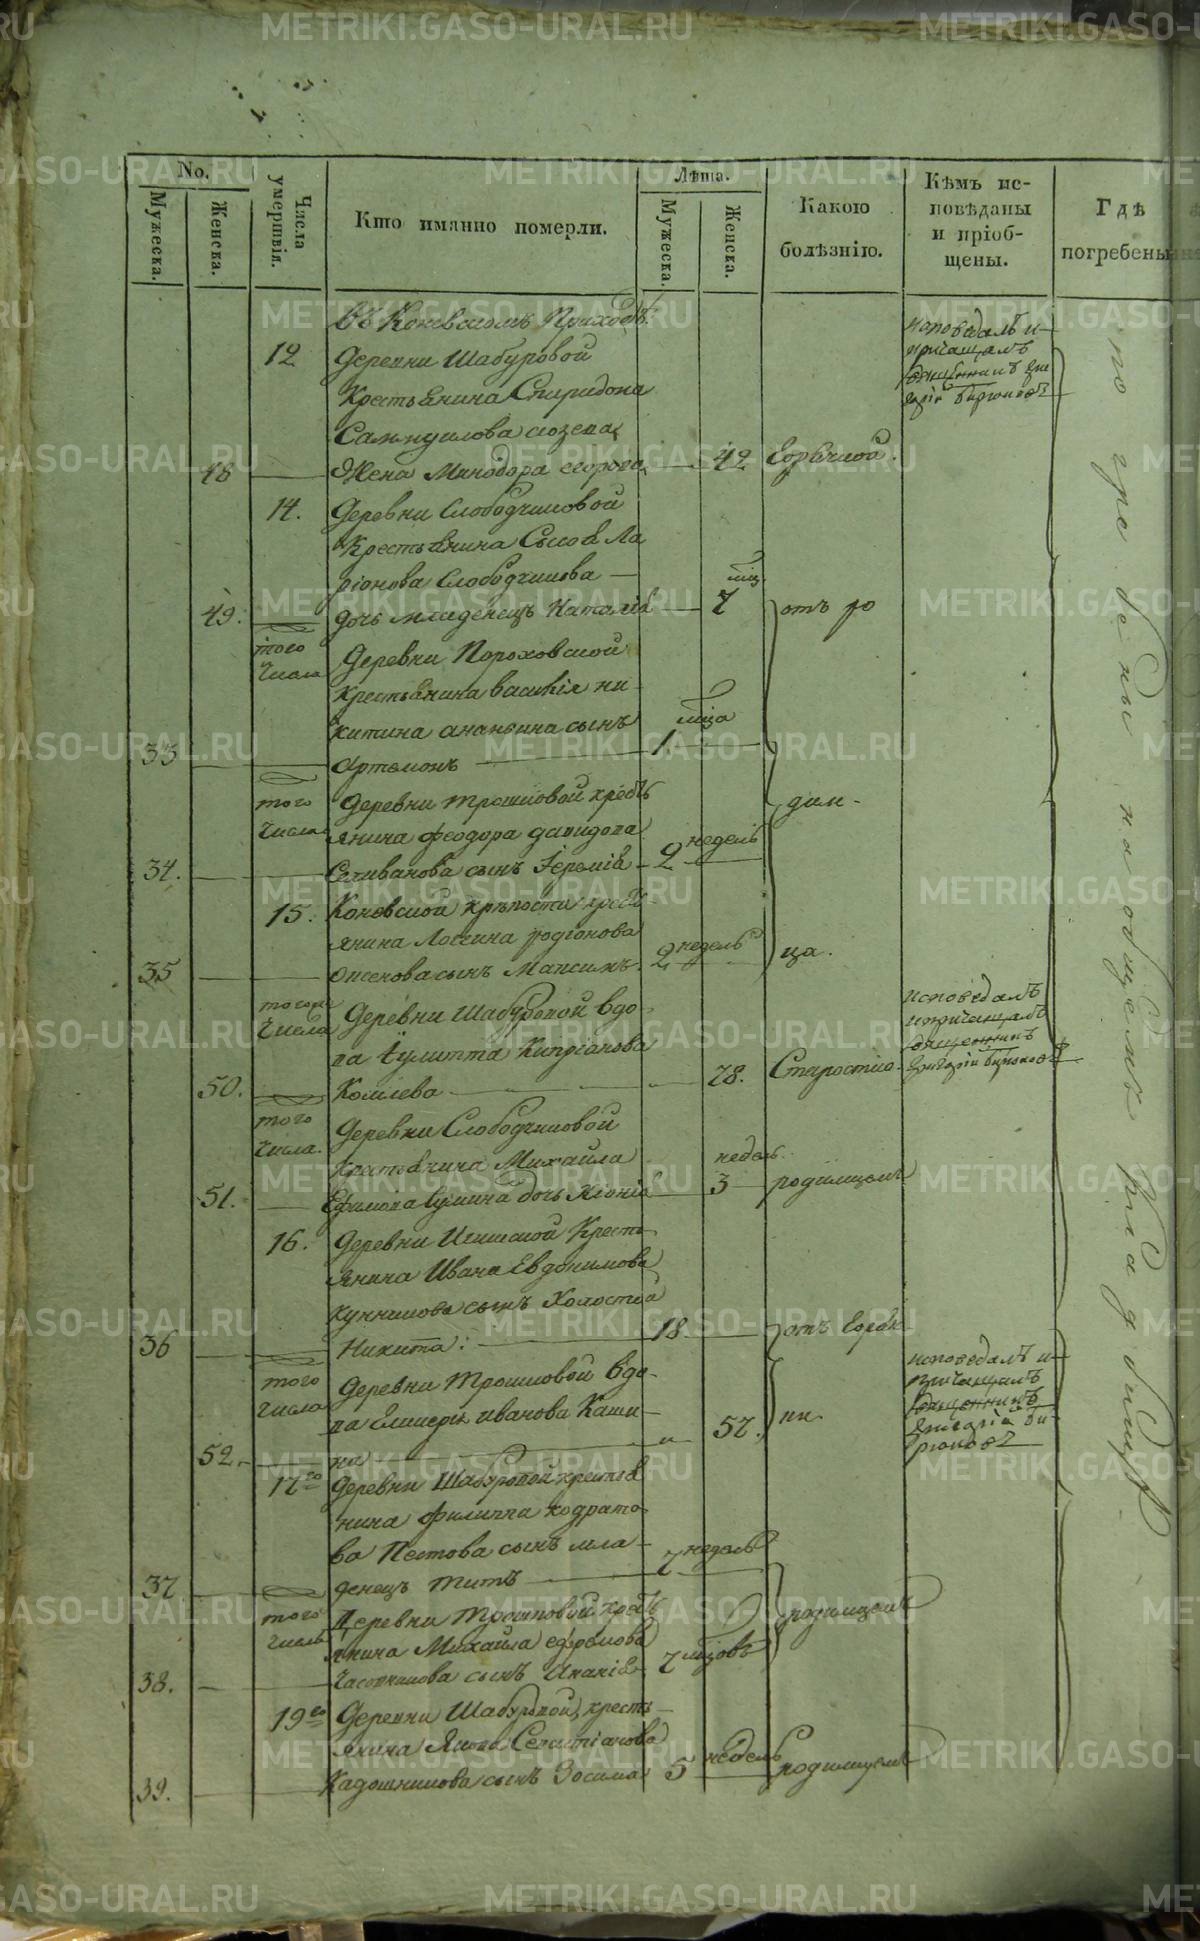 METRIKI.GASO-URAL.RU
No.
Мужеска.
Женска.
Числа умертвія.
Кто имянно померли.
Лѣта.
Мужеска.
Женска.
Какою болѣзнію.
Кѣмъ исповѣданы и пріобщены.
Гдѣ погребены
въ Коневскомъ Приходѣ.
12
Деревни Шабуровой
Крестьянина Спиридона
Самуилова
48
Жена Минодора Егорова
42
Горячкой.
исповедалъ и
причащалъ
священникъ Гри
горій Бирюковъ
14.
Деревни Слободчиковой
Крестьянина Сысоя Ла
ріонова Слободчикова
49.
дочь младенецъ Наталія
7
отъ ро
того
числа
Деревни Пороховской
Крестьянина Василія ни
китина ананьина сынъ
33
Артемонъ
1
мѣца
того
числа
Деревни трошковой кресть
янина феодора давидова
34.
Селиванова сынъ Іеремія
2 недель
дим-
15.
Коневской крѣпости кресть
янина Логина родіонова
35
сынъ Максимъ.
2 недель
ца.
тогоже
числа
Деревни Шабуровой вдо
ва Іулитта Кипріанова
50.
Комлева
78.
Старостію.
исповедалъ
и причащалъ
священникъ
Григорій Бирюковъ
того
числа.
Деревни Слободчиковой
крестьянина Михайла
51.
Ефимова дочь Хіонія
недель
3
родимцемъ
16.
Деревни Крестъ
янина Ивана Евдокимова
сынъ Холостой
36
Никита:
18
отъ горяч
того
числа
Деревни Трошковой вдо-
ва Гликерія иванова Каши
52.
на
57.
ки.
исповедалъ и
причащалъ
священникъ
Григорій Би
рюковъ
17го
Деревни Шабуровой крестья
нина филиппа кодрато
ва Пестова сынъ мла
37
денецъ титъ
7 недель
того
числа
Деревни трошковой кресть
янина Михайла ефремова
38.
сынъ Ананія
7 мѣцовъ
родимцемъ
19го
Деревни Шабуровой кресть
янина Якова Севастіанова
39.
Кадошникова сынъ Зосима
5 недель
родимцемъ
погребены на общемъ кладбищѣ